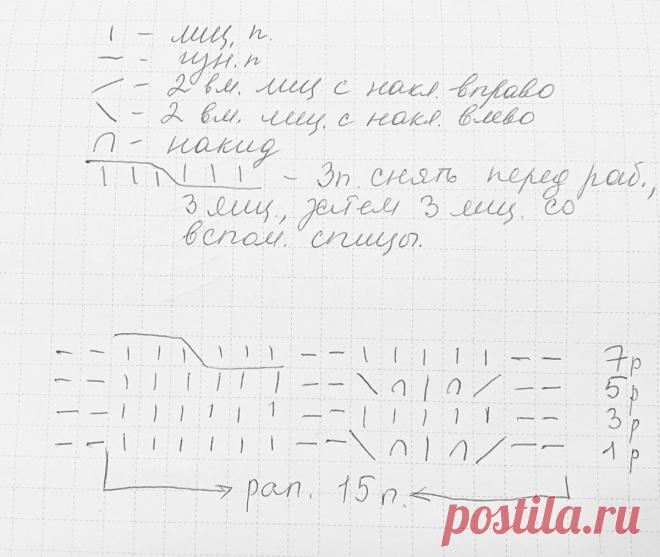 | - лиц. п.
— - изн. п
/ - 2 вм. лиц с накл. вправо
\ - 2 вм. лиц. с накл. влево
∩ - накид
| | | | | | - 3п. снять перед раб.,
3 лиц., затем 3 лиц. со
вспом. спицы.
— — | | | | | | — — | | | | | — — 7р
— — | | | | | | — — \ ∩ | ∩ / — — 5р
— — | | | | | | — — | | | | | — — 3р
— — | | | | | | — — \ ∩ | ∩ / — — 1р
рап. 15п.
postila.ru